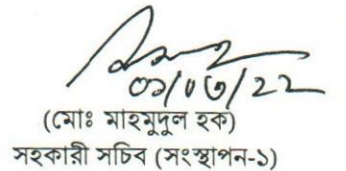 ০১/০৬/২২
(মোঃ মাহমুদুল হক)
সহকারী সচিব (সংস্থাপন-১)